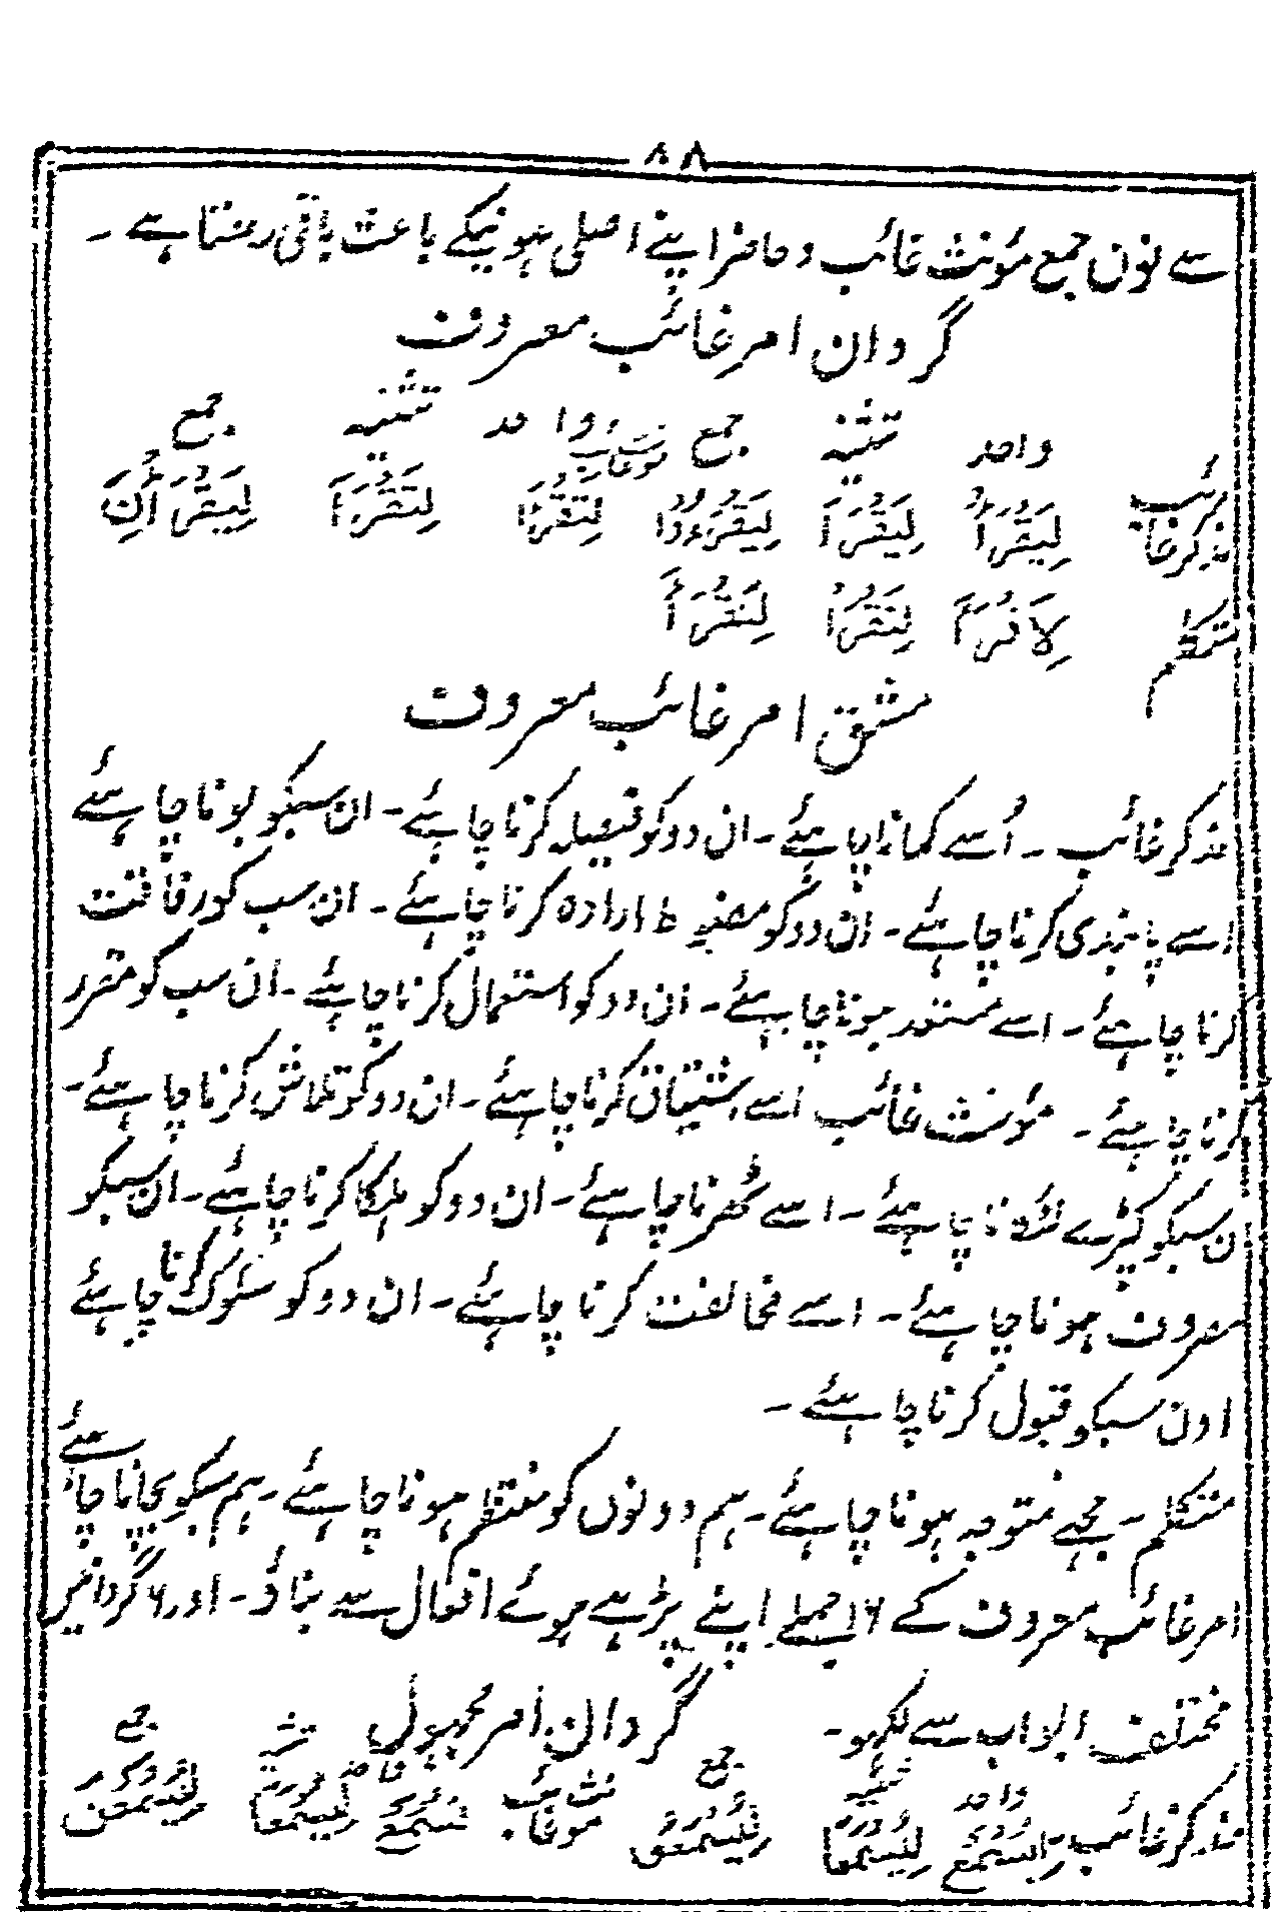 ۸۸
سے نون جمع مؤنث غائب و حاضر اپنے اصلی ہونیکے باعث باقی رہتا ہے ۔
گردان امر غائب معروف
واحد تثنیہ جمع مؤنث غائب واحد تثنیہ جمع
مذکر غائب لِيَقْرَأْ لِيَقْرَآ لِيَقْرَءُوْا لِتَقْرَأْ لِتَقْرَآ لِيَقْرَأْنَ
متکلم لِاَقْرَأْ لِنَقْرَأْ لِنَقْرَأْ
مشق امر غائب معروف
مذکر غائب ۔ اُسے کمانا چاہئے ۔ ان دو کو فیصلہ کرنا چاہئے ۔ ان سبکو بونا چاہئے
اسے پابندی کرنا چاہئے ۔ ان دو کو مضبوط ارادہ کرنا چاہئے ۔ ان سب کو رفاقت
کرنا چاہئے ۔ اسے مستعد ہونا چاہئے ۔ ان دو کو استعمال کرنا چاہئے ۔ ان سب کو مقرر
کرنا چاہئے ۔ مؤنث غائب اسے اشتیاق کرنا چاہئے ۔ ان دو کو تلاش کرنا چاہئے ۔
ان سبکو کپڑے لٹکانا چاہئے ۔ اسے ٹھرنا چاہئے ۔ ان دو کو ہلکا کرنا چاہئے ۔ ان سبکو
معروف ہونا چاہئے ۔ اسے مخالفت کرنا چاہئے ۔ ان دو کو سلوک کرنا چاہئے
اون سبکو قبول کرنا چاہئے ۔
متکلم ۔ مجھے متوجہ ہونا چاہئے ۔ ہم دونوں کو منتظم ہونا چاہئے ۔ ہم سبکو بچانا چاہئے
امر غائب معروف کے ۱۶ جملے اپنے پڑھے ہوئے افعال سے بناؤ ۔ اور ۶ گردانیں
مختلف ابواب سے لکھو ۔ گردان امر مجہول
واحد تثنیہ جمع واحد تثنیہ جمع
مذکر غائب لِيُسْمَعْ لِيُسْمَعَا لِيُسْمَعُوْا مؤنث غائب لِتُسْمَعْ لِتُسْمَعَا لِيُسْمَعْنَ